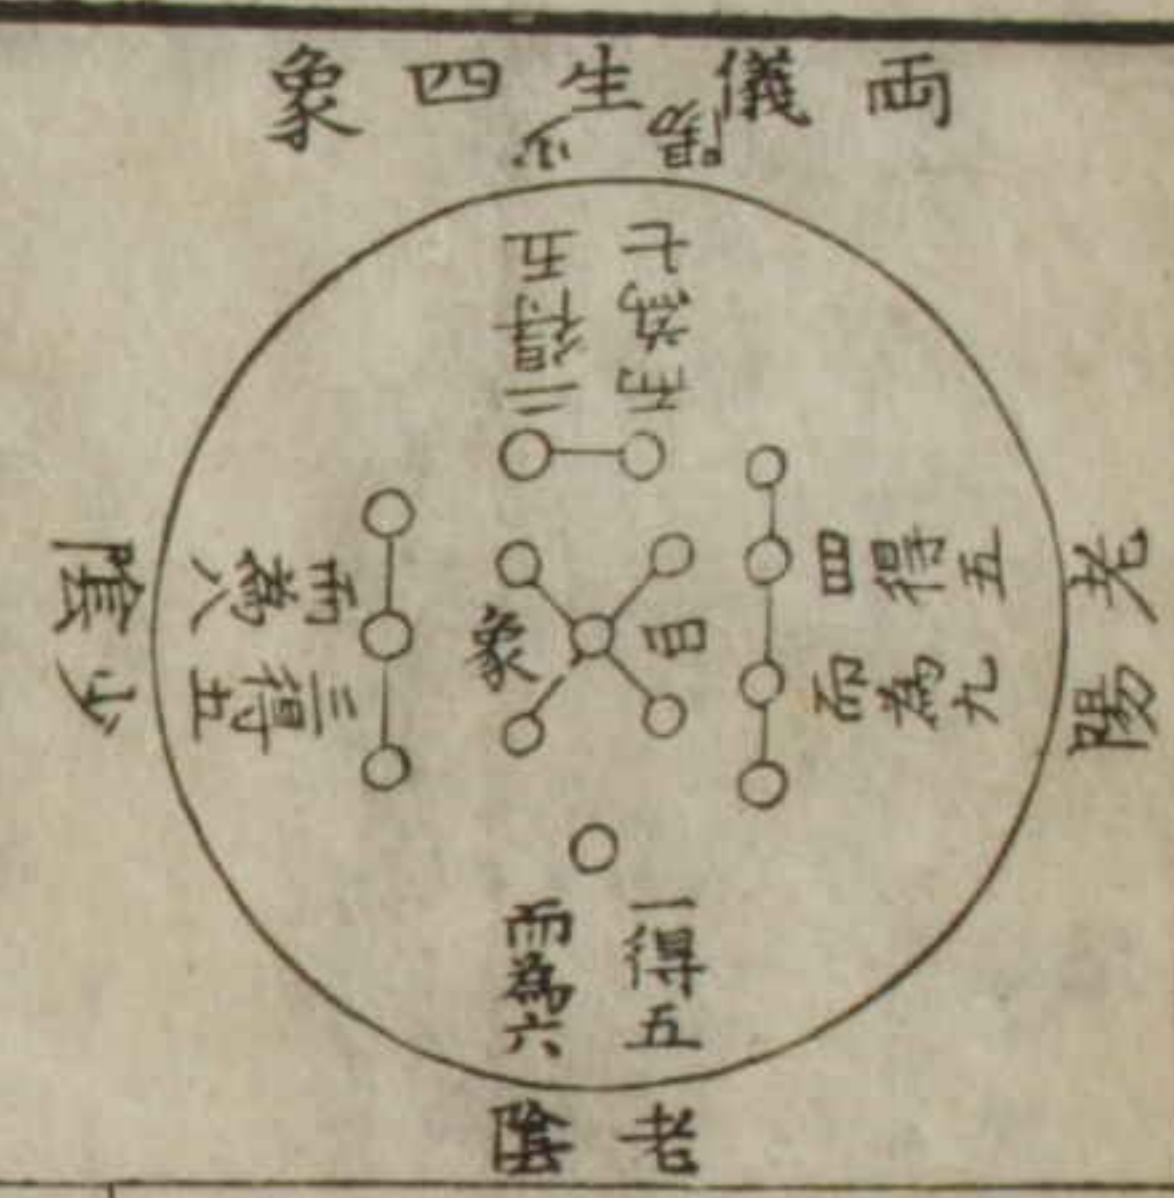 両儀生四象
少陽
二得五
而為七
老陽
四得五
而為九
少陰
三得五
而為八
老陰
一得五
而為六
象目